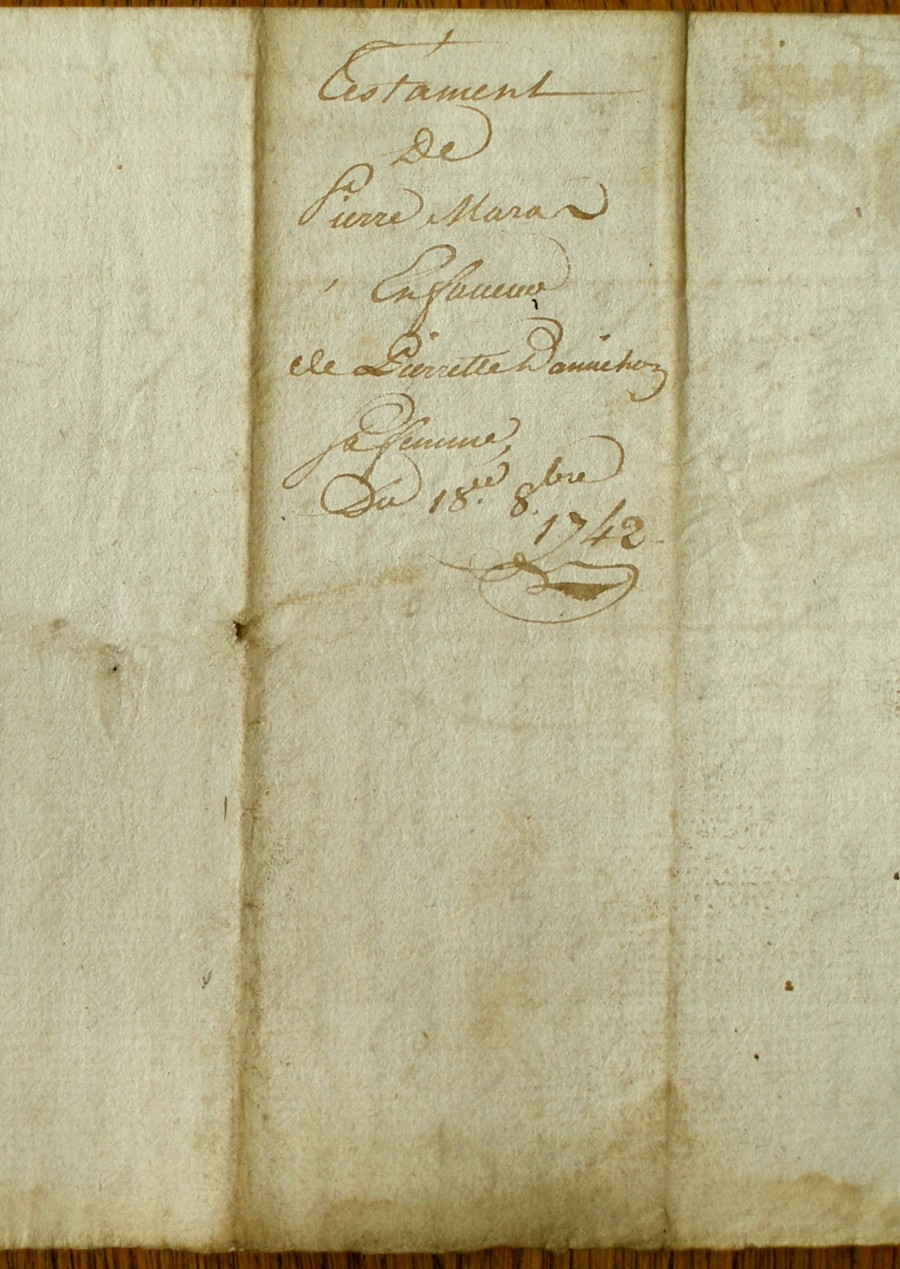 Testament
De
Pierre Mara
En faveur
de Pierrette Dannichon
sa femme,
Du 18.ee 8.bre
1742